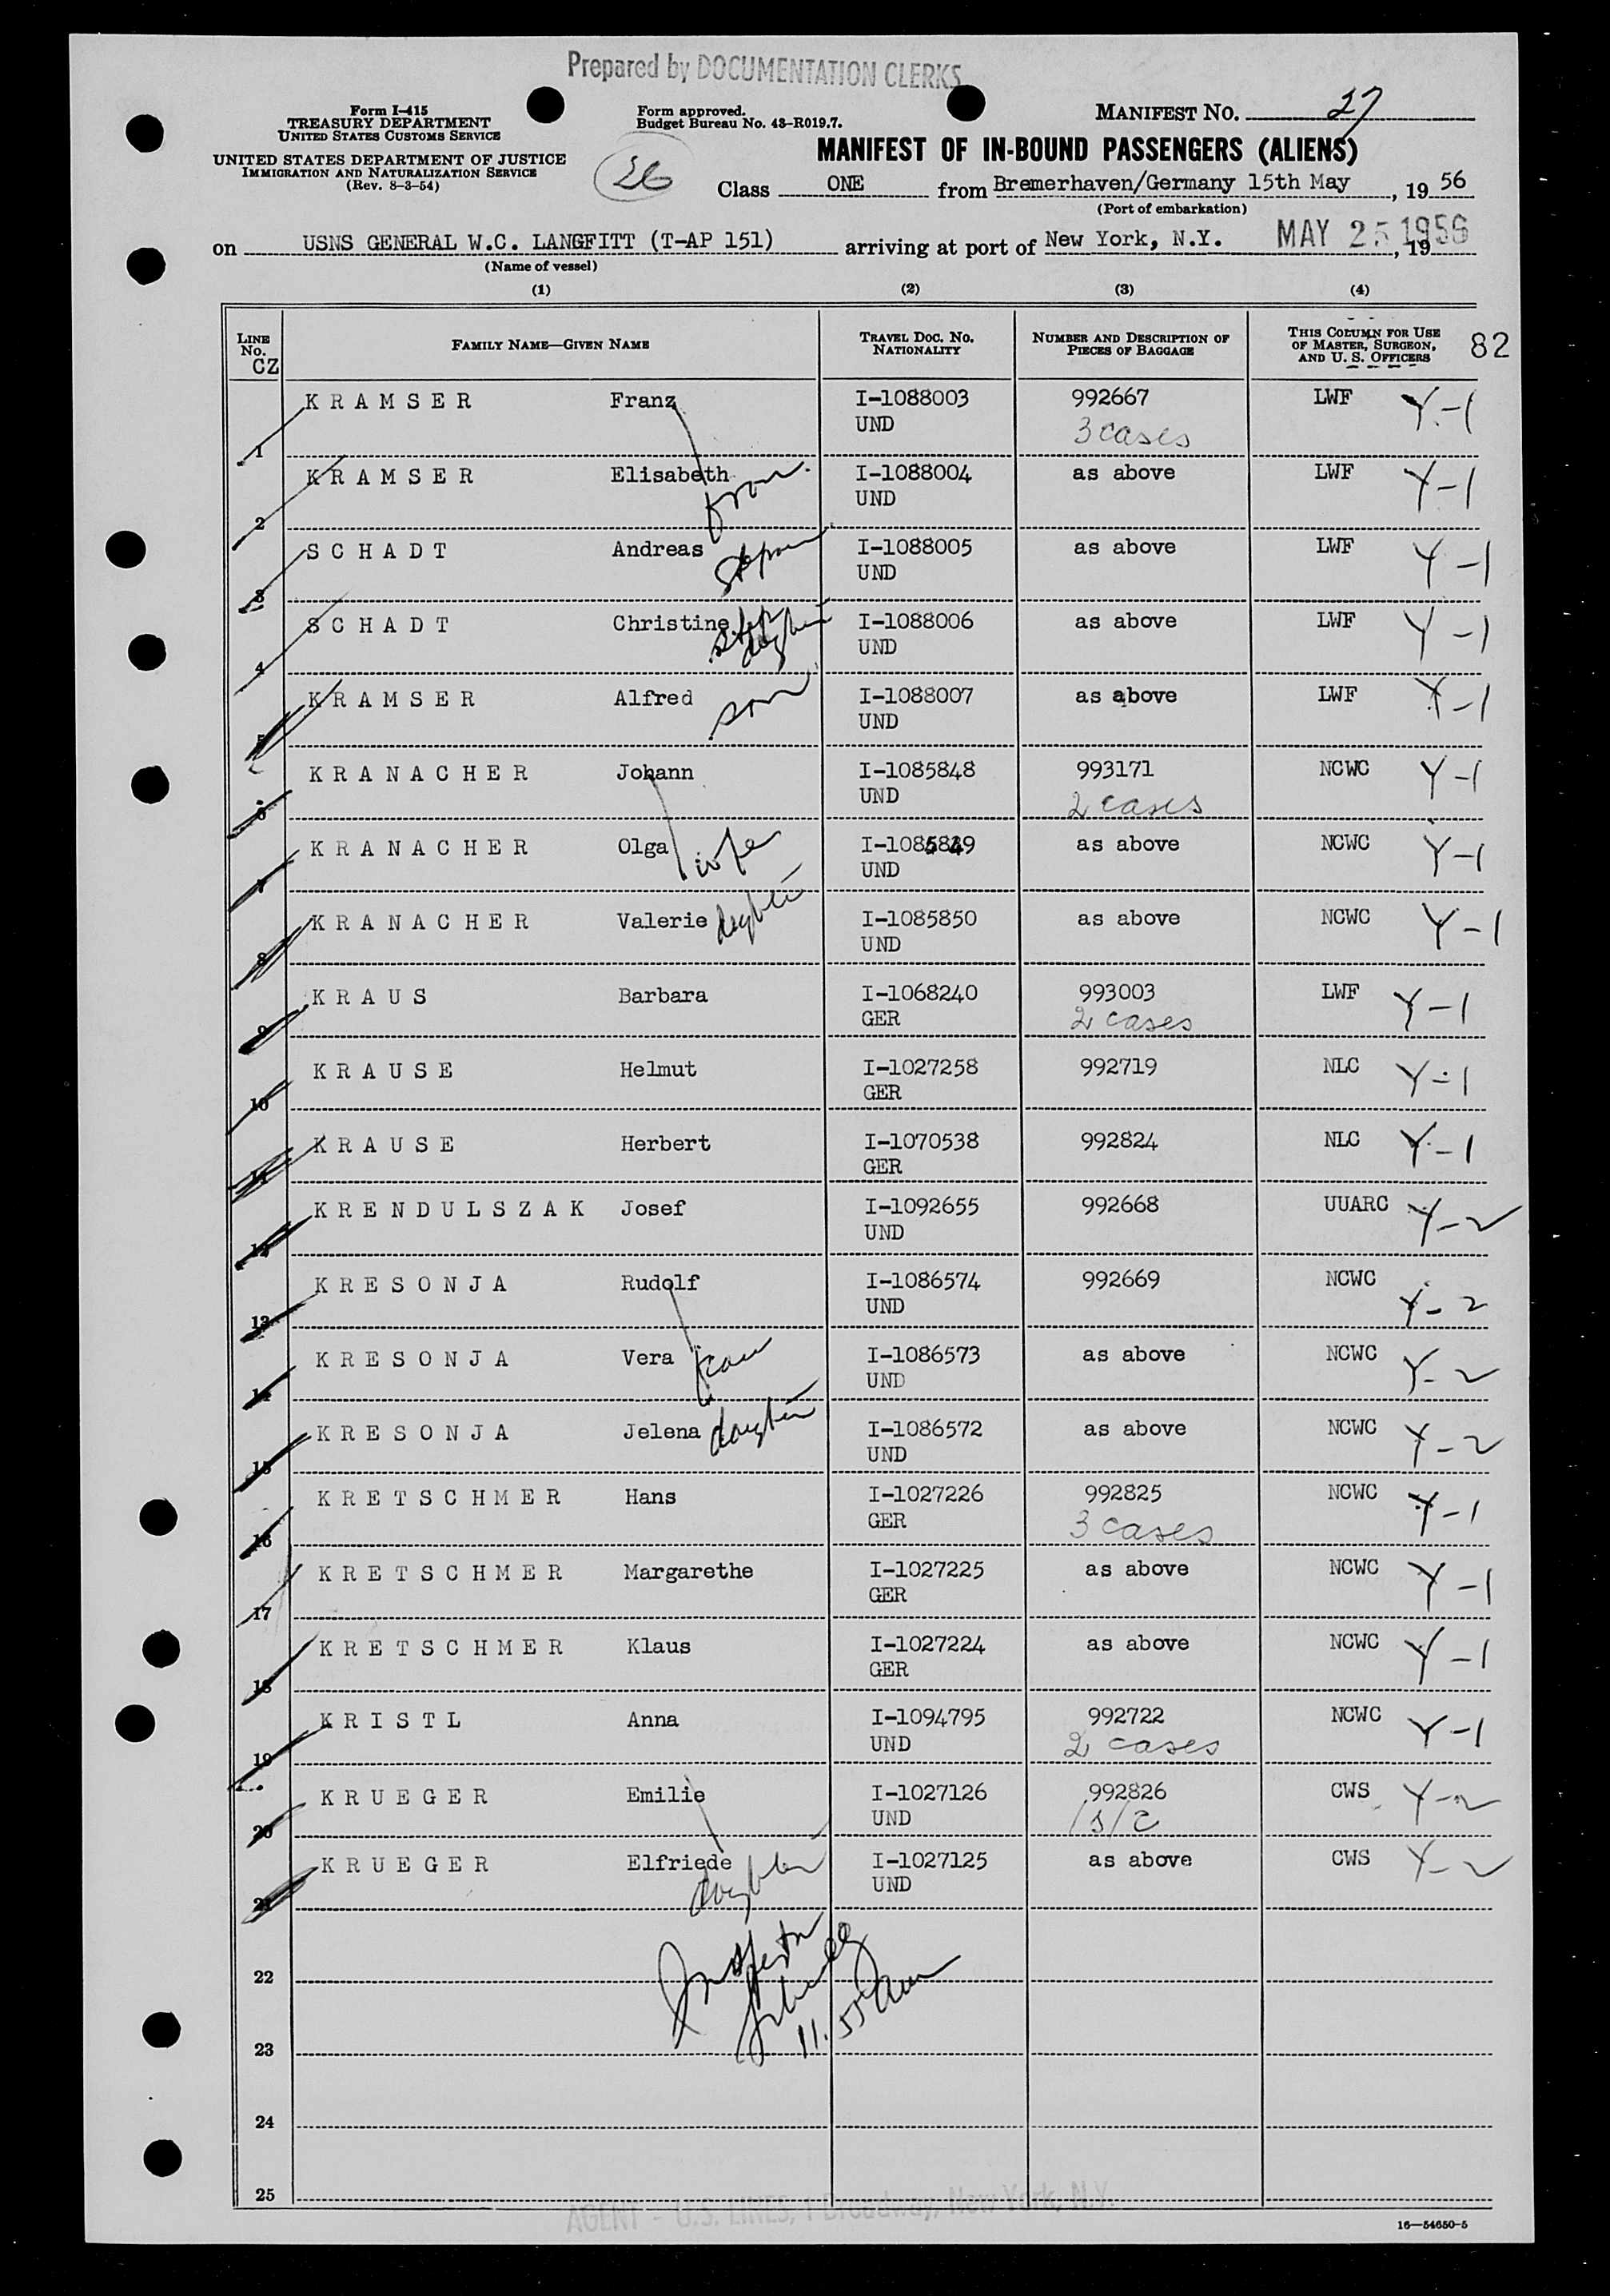 Prepared by DOCUMENTATION CLERKS
Form I-415
TREASURY DEPARTMENT
UNITED STATES CUSTOMS SERVICE
UNITED STATES DEPARTMENT OF JUSTICE
IMMIGRATION AND NATURALIZATION SERVICE
(Rev. 8-3-54)
Form approved.
Budget Bureau No. 43-R019.7.
26
MANIFEST NO. 27
MANIFEST OF IN-BOUND PASSENGERS (ALIENS)
Class ONE from Bremerhaven/Germany 15th May, 19 56
(Port of embarkation)
on USNS GENERAL W.C. LANGFITT (T-AP 151) arriving at port of New York, N.Y. MAY 25 1956, 19
(Name of vessel)
(1) (2) (3) (4)
LINE NO. CZ FAMILY NAME—GIVEN NAME TRAVEL DOC. NO. NATIONALITY NUMBER AND DESCRIPTION OF PIECES OF BAGGAGE THIS COLUMN FOR USE OF MASTER, SURGEON, AND U. S. OFFICERS 82
1 KRAMSER Franz I-1088003 UND 992667 3 cases LWF Y-1
2 KRAMSER Elisabeth frau I-1088004 UND as above LWF Y-1
3 SCHADT Andreas I-1088005 UND as above LWF Y-1
4 SCHADT Christine step daughter I-1088006 UND as above LWF Y-1
5 KRAMSER Alfred son I-1088007 UND as above LWF Y-1
6 KRANACHER Johann I-1085848 UND 993171 2 cases NCWC Y-1
7 KRANACHER Olga wife I-1085849 UND as above NCWC Y-1
8 KRANACHER Valerie daughter I-1085850 UND as above NCWC Y-1
9 KRAUS Barbara I-1068240 GER 993003 2 cases LWF Y-1
10 KRAUSE Helmut I-1027258 GER 992719 NLC Y-1
11 KRAUSE Herbert I-1070538 GER 992824 NLC Y-1
12 KRENDULSZAK Josef I-1092655 UND 992668 UUARC Y-2
13 KRESONJA Rudolf I-1086574 UND 992669 NCWC Y-2
14 KRESONJA Vera frau I-1086573 UND as above NCWC Y-2
15 KRESONJA Jelena daughter I-1086572 UND as above NCWC Y-2
16 KRETSCHMER Hans I-1027226 GER 992825 3 cases NCWC Y-1
17 KRETSCHMER Margarethe I-1027225 GER as above NCWC Y-1
18 KRETSCHMER Klaus I-1027224 GER as above NCWC Y-1
19 KRISTL Anna I-1094795 UND 992722 2 cases NCWC Y-1
20 KRUEGER Emilie I-1027126 UND 992826 1 S/C CWS Y-2
21 KRUEGER Elfriede daughter I-1027125 UND as above CWS Y-2
Inspector
11:55 am
22
23
24
25
AGENT - U.S. LINES, 1 Broadway, New York, N.Y.
16—54650-5